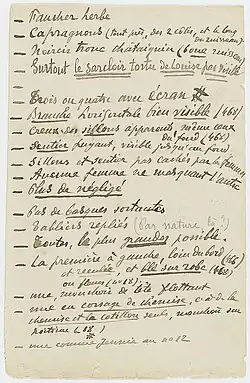 — Faucher herbe
— Capragnons (tout près, des 2 côtés, et le long du ruisseau)
— Noircir tronc châtaignier (bout ruisseau)
— Surtout le sarcloir tortu de Louise pas visible
— Trois ou quatre avec écran
— Branche horizontale bien visible (468)
— Creux des sillons apparents, même ceux du fond (468)
— Sentier fuyant, visible jusqu'au fond
— Sillons et sentier pas cachés par la femme
— Aucune femme ne masquant l'autre
— Pas de négligé
— Pas de casques sortantes
— Tabliers repliés (Par nature, 2 ?)
— Toutes, le plus grandes possible.
— La première à gauche, loin du bord (466)
et remuée, et blé sur robe (468)
ou fleurs (n° 18).
— une, mouchoir de tête flottant
— une en corsage de chemise, c. à d. la
chemise et le cotillon seuls, mouchoir sur
poitrine (18)
— une comme Jeannie au n° 12